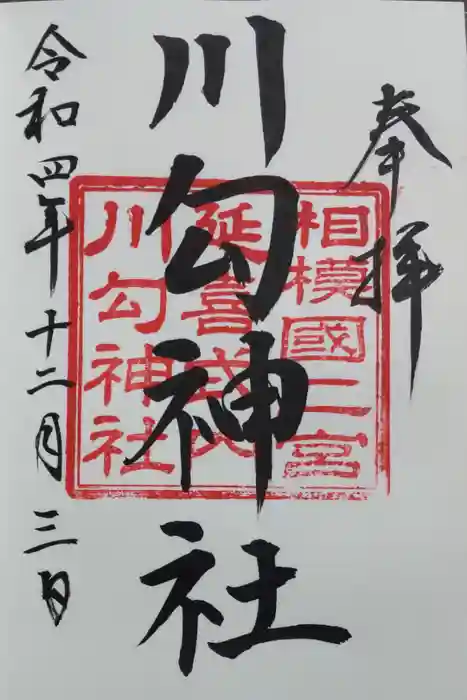 奉拝
川勾神社
相模國二宮
延喜式内
川勾神社
令和四年十二月三日